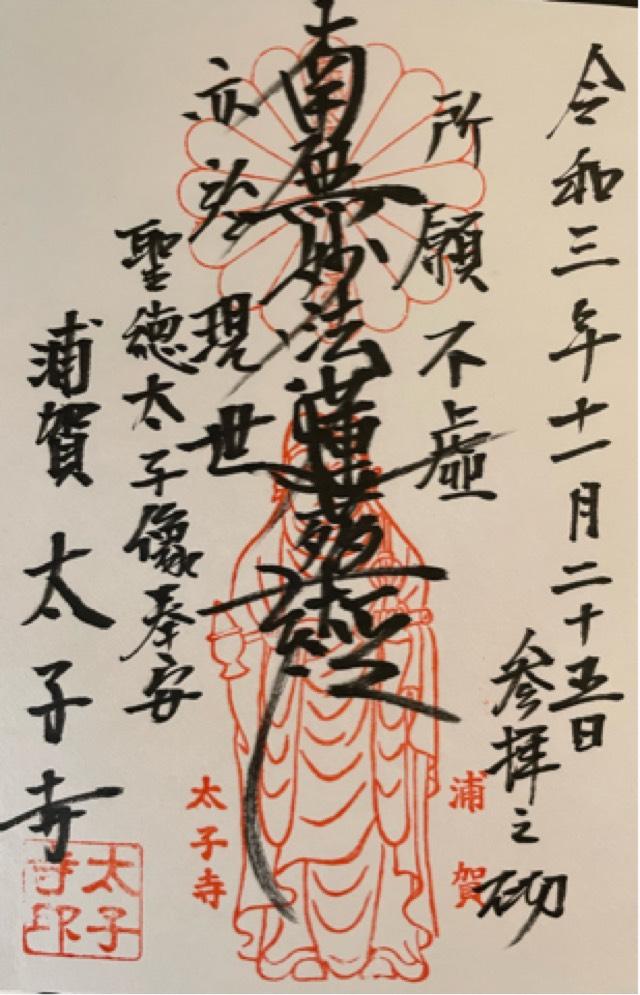 令和三年十一月二十五日
参拝之砌
所願不虚
南無妙法蓮華経
亦於現世
聖徳太子像奉安
浦賀 太子寺
浦賀
太子寺
太子
寺印